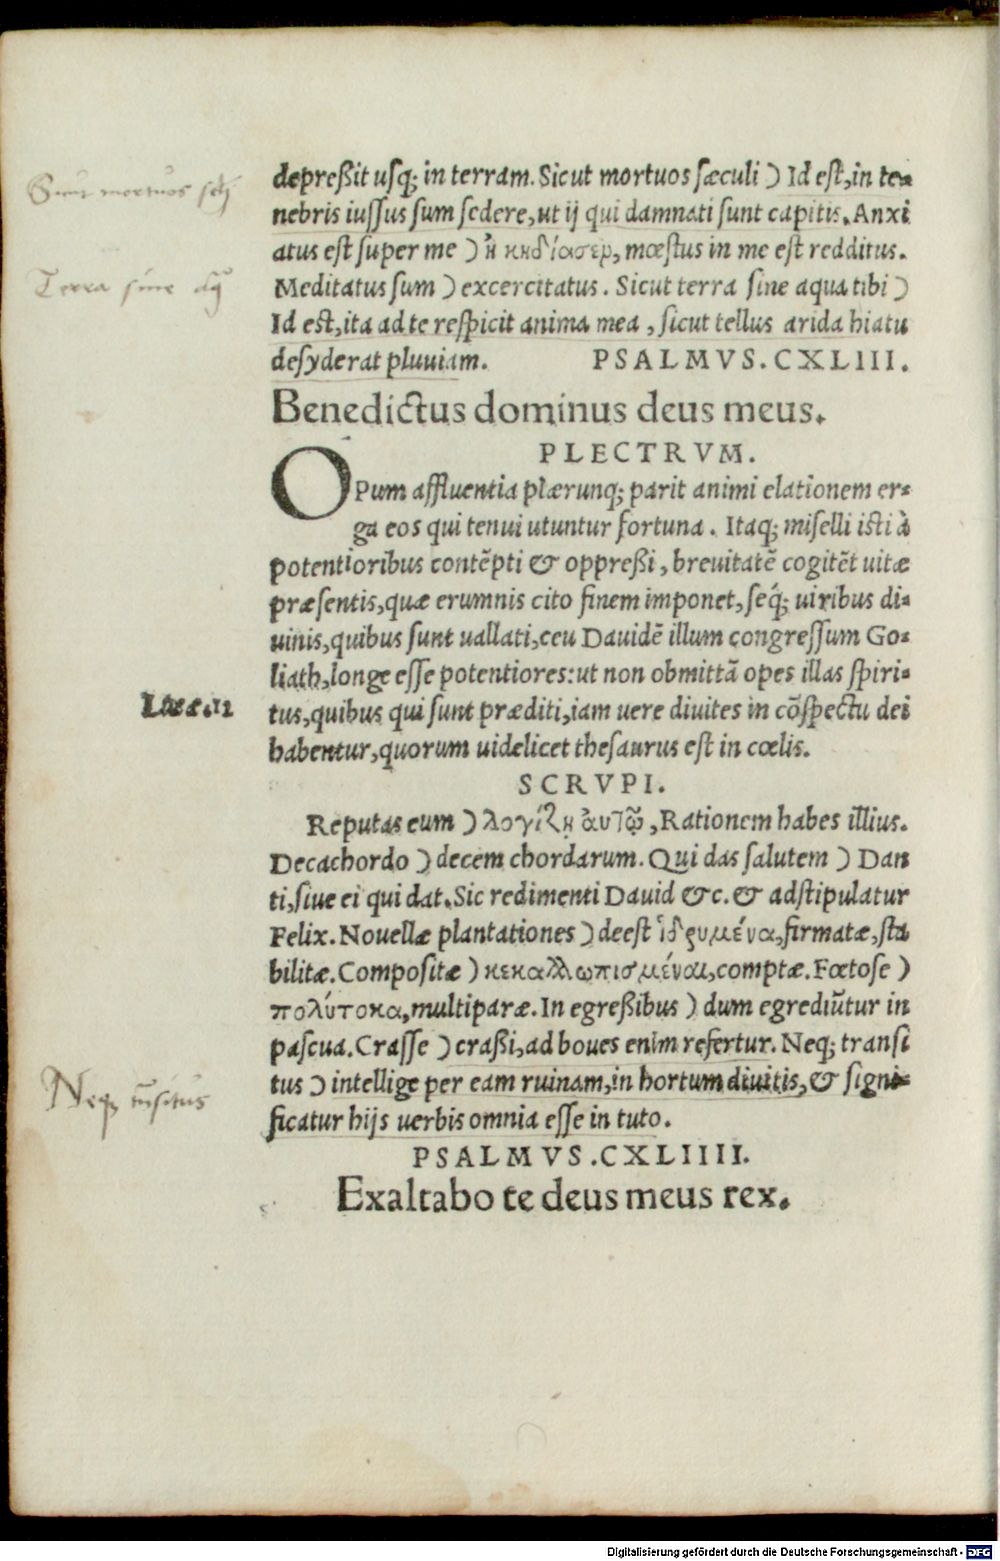 depreßit usq; in terram. Sicut mortuos sæculi ) Id est, in te=
nebris iussus sum sedere, ut ij qui damnati sunt capitis. Anxi
atus est super me ) ἠ κηδίασεν, mœstus in me est redditus.
Meditatus sum ) excercitatus. Sicut terra sine aqua tibi )
Id est, ita ad te respicit anima mea, sicut tellus arida hiatu
desyderat pluuiam. PSALMVS. CXLIII.
Benedictus dominus deus meus.
PLECTRVM.
OPum affluentia plærunq; parit animi elationem er=
ga eos qui tenui utuntur fortuna. Itaq; miselli isti à
potentioribus contẽpti & oppreßi, breuitatẽ cogitẽt uitæ
præsentis, quæ erumnis cito finem imponet, seq́; uiribus di=
uinis, quibus sunt uallati, ceu Dauidẽ illum congressum Go=
liath, longe esse potentiores: ut non obmittã opes illas spiri=
tus, quibus qui sunt præditi, iam uere diuites in cõspectu dei
habentur, quorum uidelicet thesaurus est in cœlis.
SCRVPI.
Reputas eum ) λογίζῃ ἀυτῷ, Rationem habes illius.
Decachordo ) decem chordarum. Qui das salutem ) Dan
ti, siue ei qui dat. Sic redimenti Dauid &c. & adstipulatur
Felix. Nouellæ plantationes ) deest ἱδρυμένα, firmatæ, sta
bilitæ. Compositæ ) κεκαλλωπισμέναι, comptæ. Fœtose )
πολύτοκα, multiparæ. In egreßibus ) dum egrediũtur in
pascua. Crasse ) craßi, ad boues enim refertur. Neq; transi
tus ) intellige per eam ruinam, in hortum diuitis, & signi=
ficatur hijs uerbis omnia esse in tuto.
PSALMVS. CXLIIII.
Exaltabo te deus meus rex.
Terra sine aq̃
Lucæ. 12
Neq; trãsitus
Digitalisierung gefördert durch die Deutsche Forschungsgemeinschaft - DFG